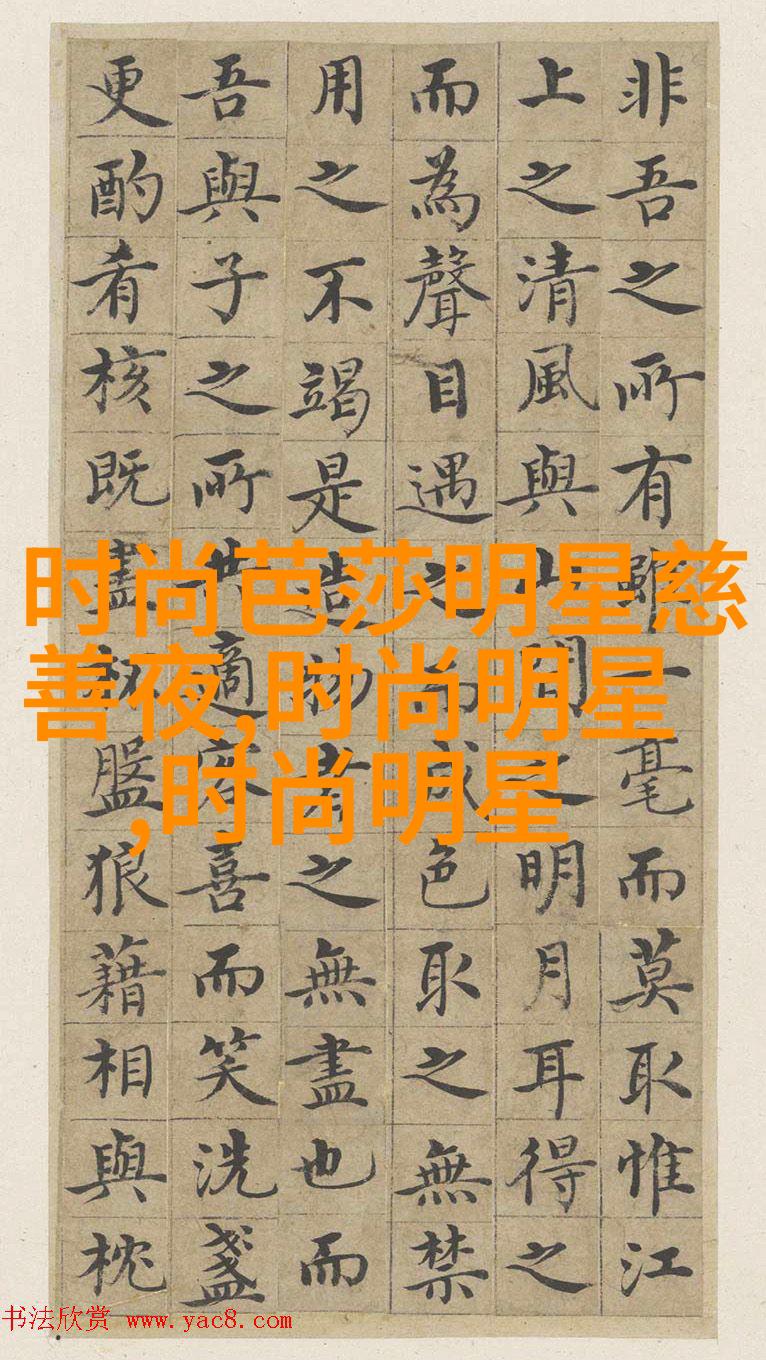 非吾之所有雖一毫而莫取惟江
上之清風與山間之明月耳得之
而為聲目遇之而成色取之無禁
用之不竭是造物者之無盡也而
吾與子之所共適客喜而笑洗盞
更酌肴核既盡杯盤狼藉相與枕
时尚芭莎明星慈
善夜,时尚明星
,时尚明星
书法欣赏 www.yac8.com